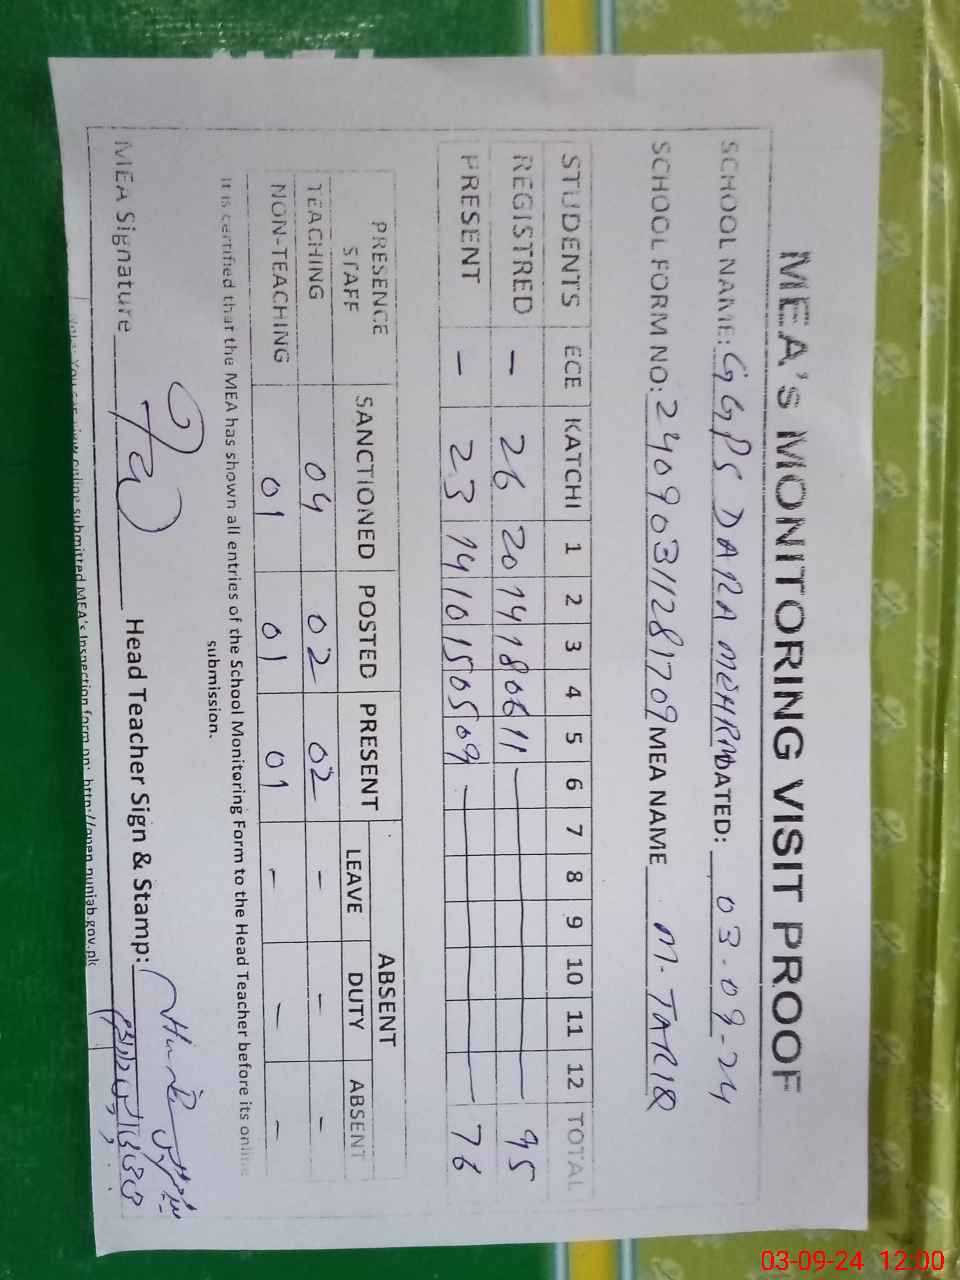 MEA's MONITORING VISIT PROOF
SCHOOL NAME: GGPS DARA MEHRM DATED: 03-09-24
SCHOOL FORM NO: 24090311281709 MEA NAME M. TARIQ
STUDENTS ECE KATCHI 1 2 3 4 5 6 7 8 9 10 11 12 TOTAL
REGISTRED - 26 20 14 18 06 11 95
PRESENT - 23 14 10 15 05 09 76
PRESENCE STAFF SANCTIONED POSTED PRESENT ABSENT
LEAVE DUTY ABSENT
TEACHING 04 02 02 - - -
NON-TEACHING 01 01 01 - - -
It is certified that the MEA has shown all entries of the School Monitoring Form to the Head Teacher before its online
submission.
MEA Signature Head Teacher Sign & Stamp:
Note: You can view online submitted MEA's Inspection form on: http://open.punjab.gov.pk
03-09-24 12:00